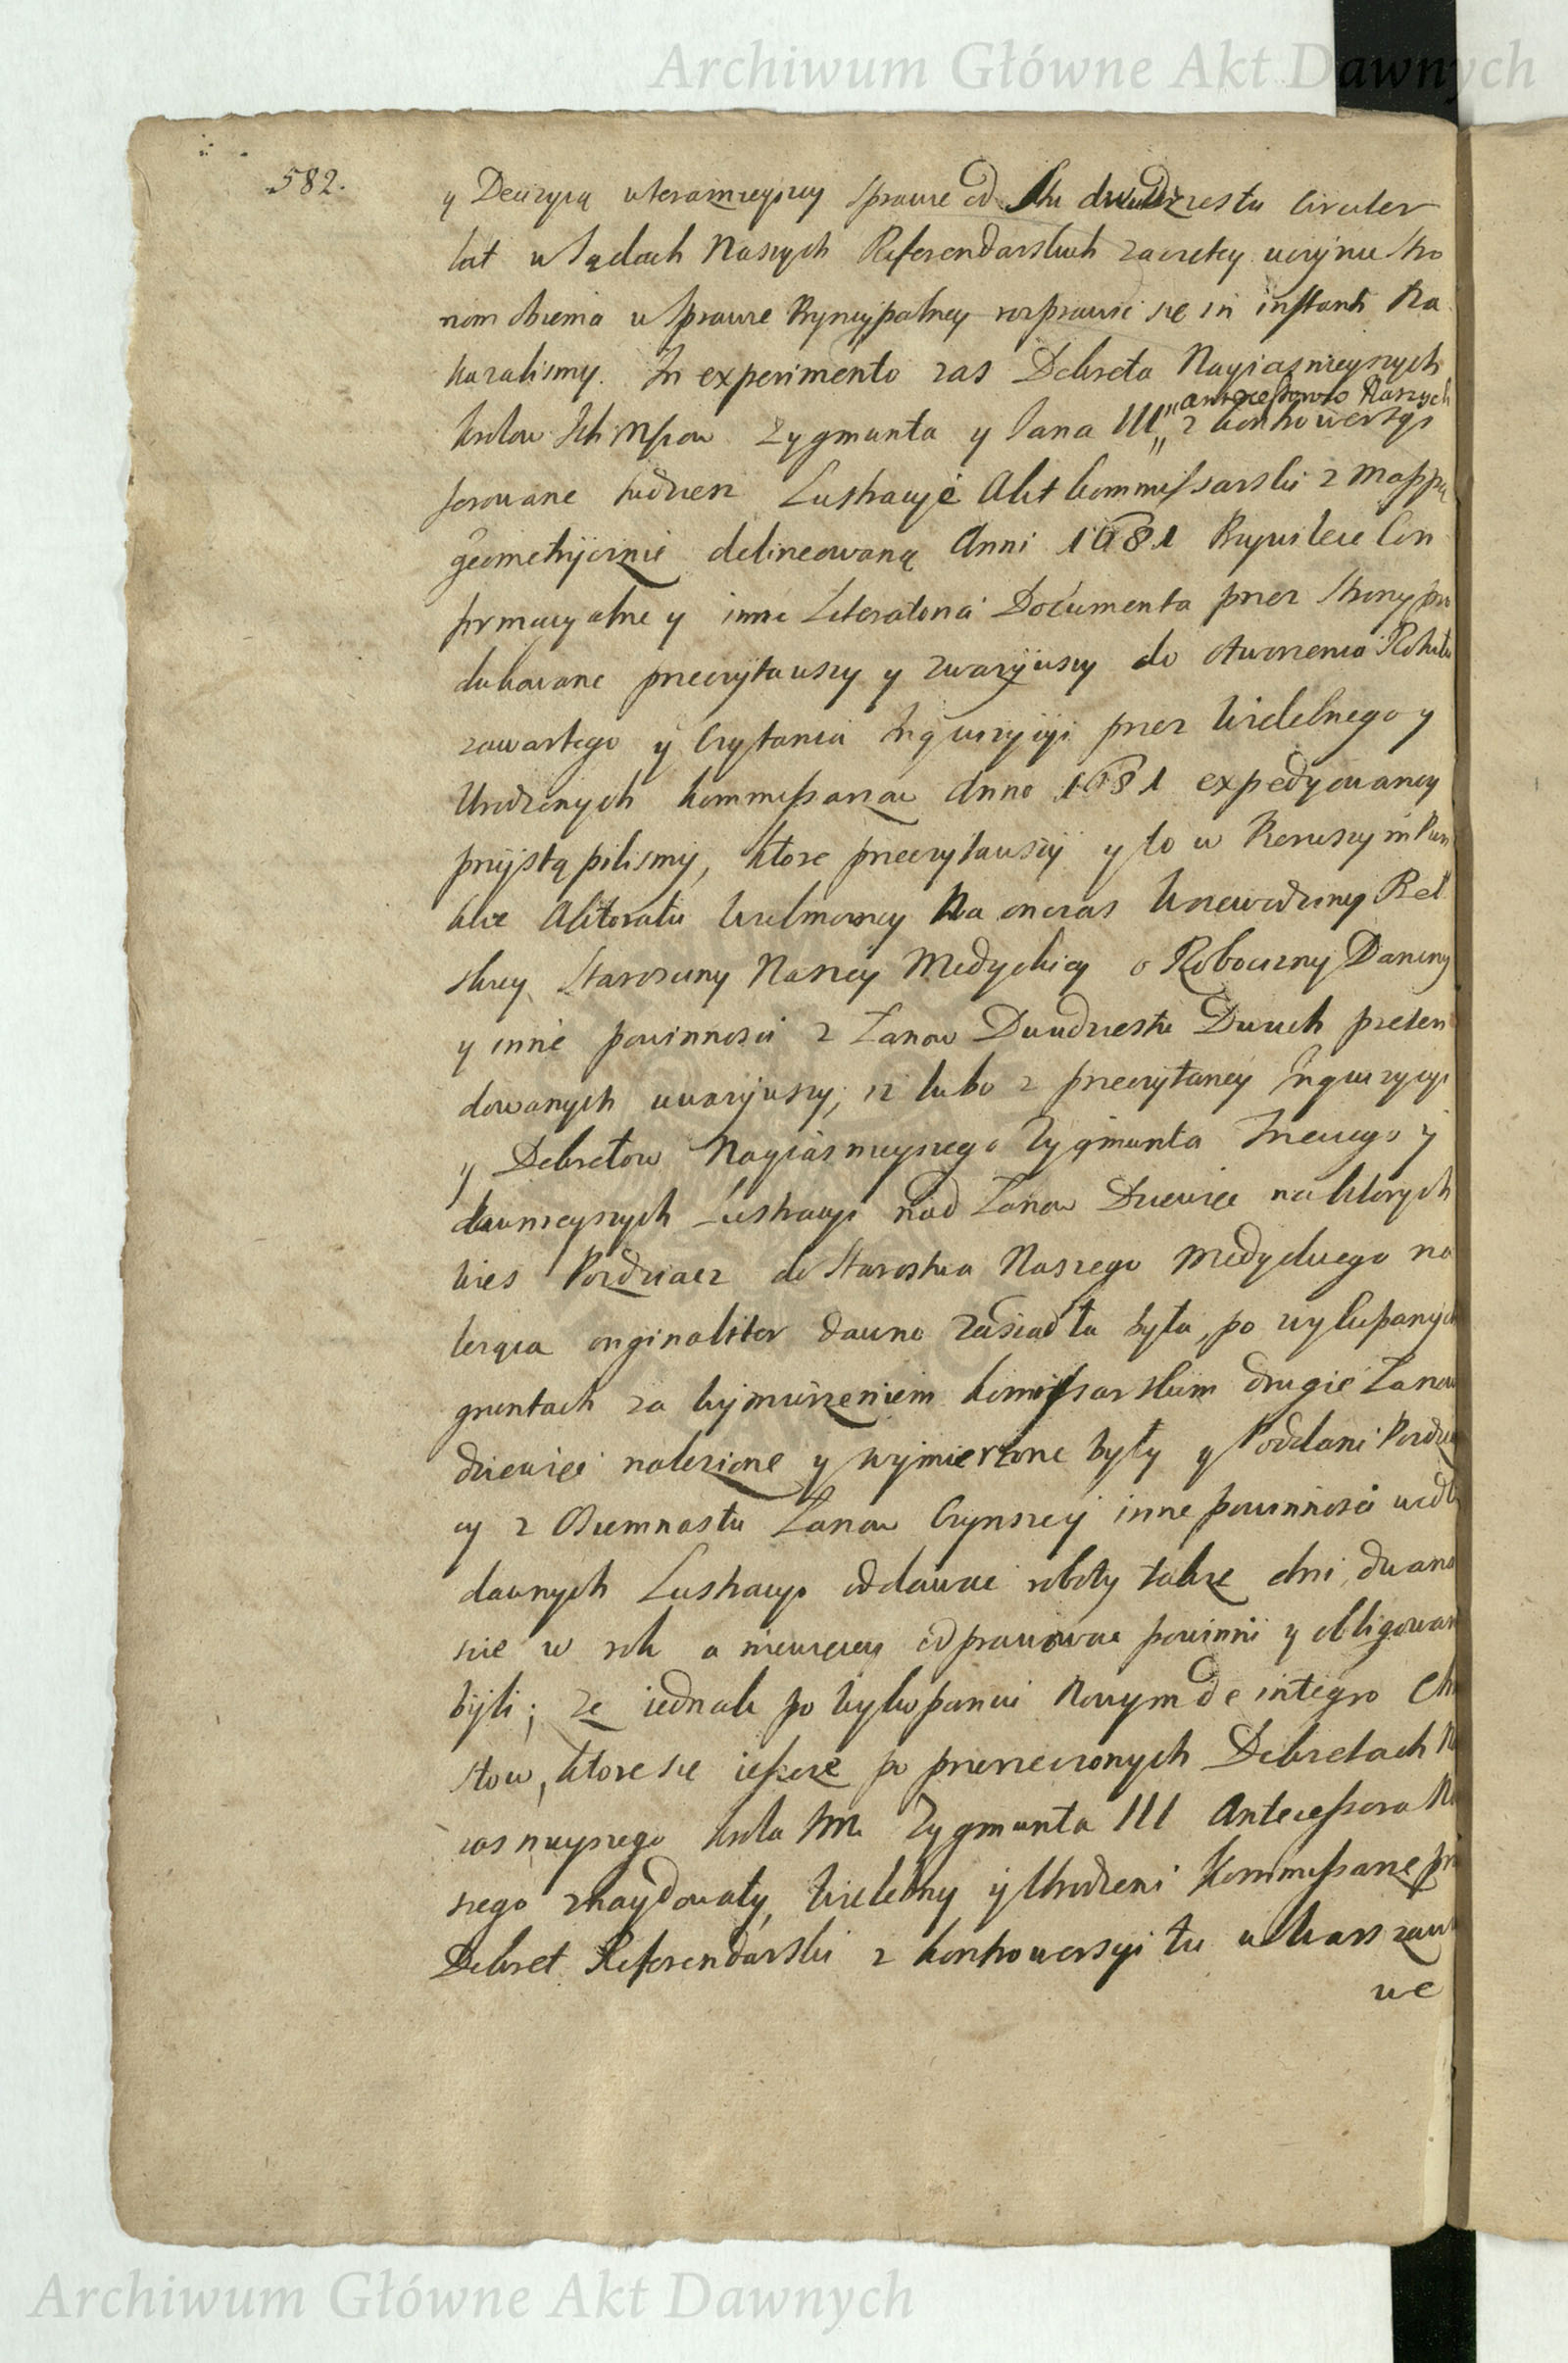 Archiwum Główne Akt Dawnych
582.
y Decyzyą w teraznieyszey sprawie od Stu dwudziestu circiter
lat w Sądach Naszych Referendarskich zaczętey uczynić Stro
nom obiema w sprawie Pryncypalney rosprawić się in instanti Na
kazaliśmy. In experimento zas Dekreta Nayiasnieyszych
antecessorow Naszych
Krolow Ich Mściow Zygmunta y Jana III „ z kontrowersyi
ferowane tudziesz Lustracye Akt kommissarski z Mappą
geometrycznie delineowaną Anni 1681 Przywileie Con
firmacyalne y inne Literatoria Documenta przez Strony pro
dukowane przeczytawszy y zwazywszy do otworzenia Rotułu
zawartego y Czytania Inquizycyi przez Wielebnego y
Urodzonych kommissarzow Anno 1681 expedyowaney
przystąpiliśmy, ktore przeczytawszy y to w Pierwszym Pun
kcie Aktoratu Wielmozney Na onczas Woiewodziny Beł
skiey Starosciny Naszey Medyckiey o Robocizny Daniny
y inne powinnosci z Łanow Dwudziestu Dwuch preten
dowanych uwazywszy, iz lubo z przeczytaney Inquizycyi
y Dekretow Nayiasnieyszego Zygmunta Trzeciego y
dawnieyszych Lustracyi nad Łanow Dziewięc na ktorych
wies Pozdziacz do Starostwa Naszego Medyckiego na
leząca originaliter dawno zasiadła była, po wykupanych
gruntach za wymierzeniem kommissarskim drugie Łanow
dziewięć nalezione y wymierzone były y Poddani Pozdzia
cy z Osiemnastu Łanow Czynszey inne powinnosci wedłu
dawnych Lustracyi oddawac roboty takze dni dwana
scie w rok a niewięcey odprawowac powinni y obligowani
byli; ze iednak po wykopaniu Nowym de integro Chru
stow, ktore się ieszcze po przerzeczonych Dekretach Na
iasnieyszego krola Jm Zygmunta III Antecessora Na
szego znaydowały, Wielebny y Urodzeni Kommissarze prz
Dekret Referendarski z kontrowersyi tu w Warszaw
we
Archiwum Główne Akt Dawnych